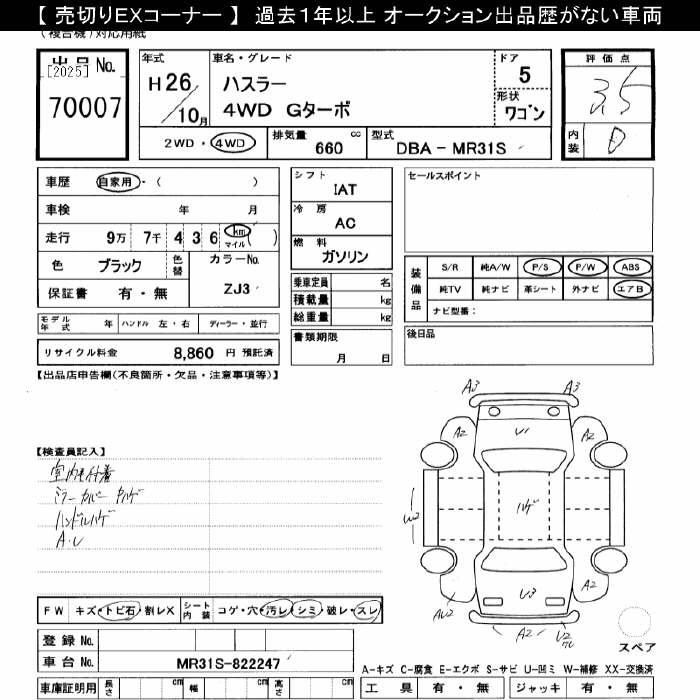 【 売切りEXコーナー 】 過去1年以上 オークション出品歴がない車両
(複合機)対応用紙
出品No.
[2025]
70007
年式
H26
10月
車名・グレード
ハスラー
4WD Gターボ
ドア
5
形状
ワゴン
評価点
3.5
内装
D
2WD・4WD
排気量
660
cc
型式
DBA － MR31S
車歴 自家用・( )
車検 年 月
走行 9万 7千 4 3 6 km マイル ( )
色 ブラック 色替 カラーNo.
保証書 有・無 ZJ3
モデル年式 年 ハンドル 左・右 ディーラー・並行
リサイクル料金 8,860 円 預託済
シフト
IAT
冷房
AC
燃料
ガソリン
乗車定員 名
積載量 kg
総重量 kg
書類期限
月 日
セールスポイント
装備品
S/R 純A/W P/S P/W ABS
純TV 純ナビ 革シート 外ナビ エアB
ナビ型番：
後日品
【出品店申告欄(不良箇所・欠品・注意事項等)】
【検査員記入】
ミラーカバー
ハンドルハゲ
A.U
A3 A3
A2 U1 A2
W2 ハゲ
U3
AU2 A2
A2 U2
スペア
FW キズ・トビ石・割レX シート内装 コゲ・穴・汚レ・シミ・破レ・スレ
登録No.
車台No. MR31S-822247
車庫証明用 長さ cm 幅 cm 高さ cm
A-キズ C-腐食 E-エクボ S-サビ U-凹ミ W-補修 XX-交換済
工具 有・無 ジャッキ 有・無